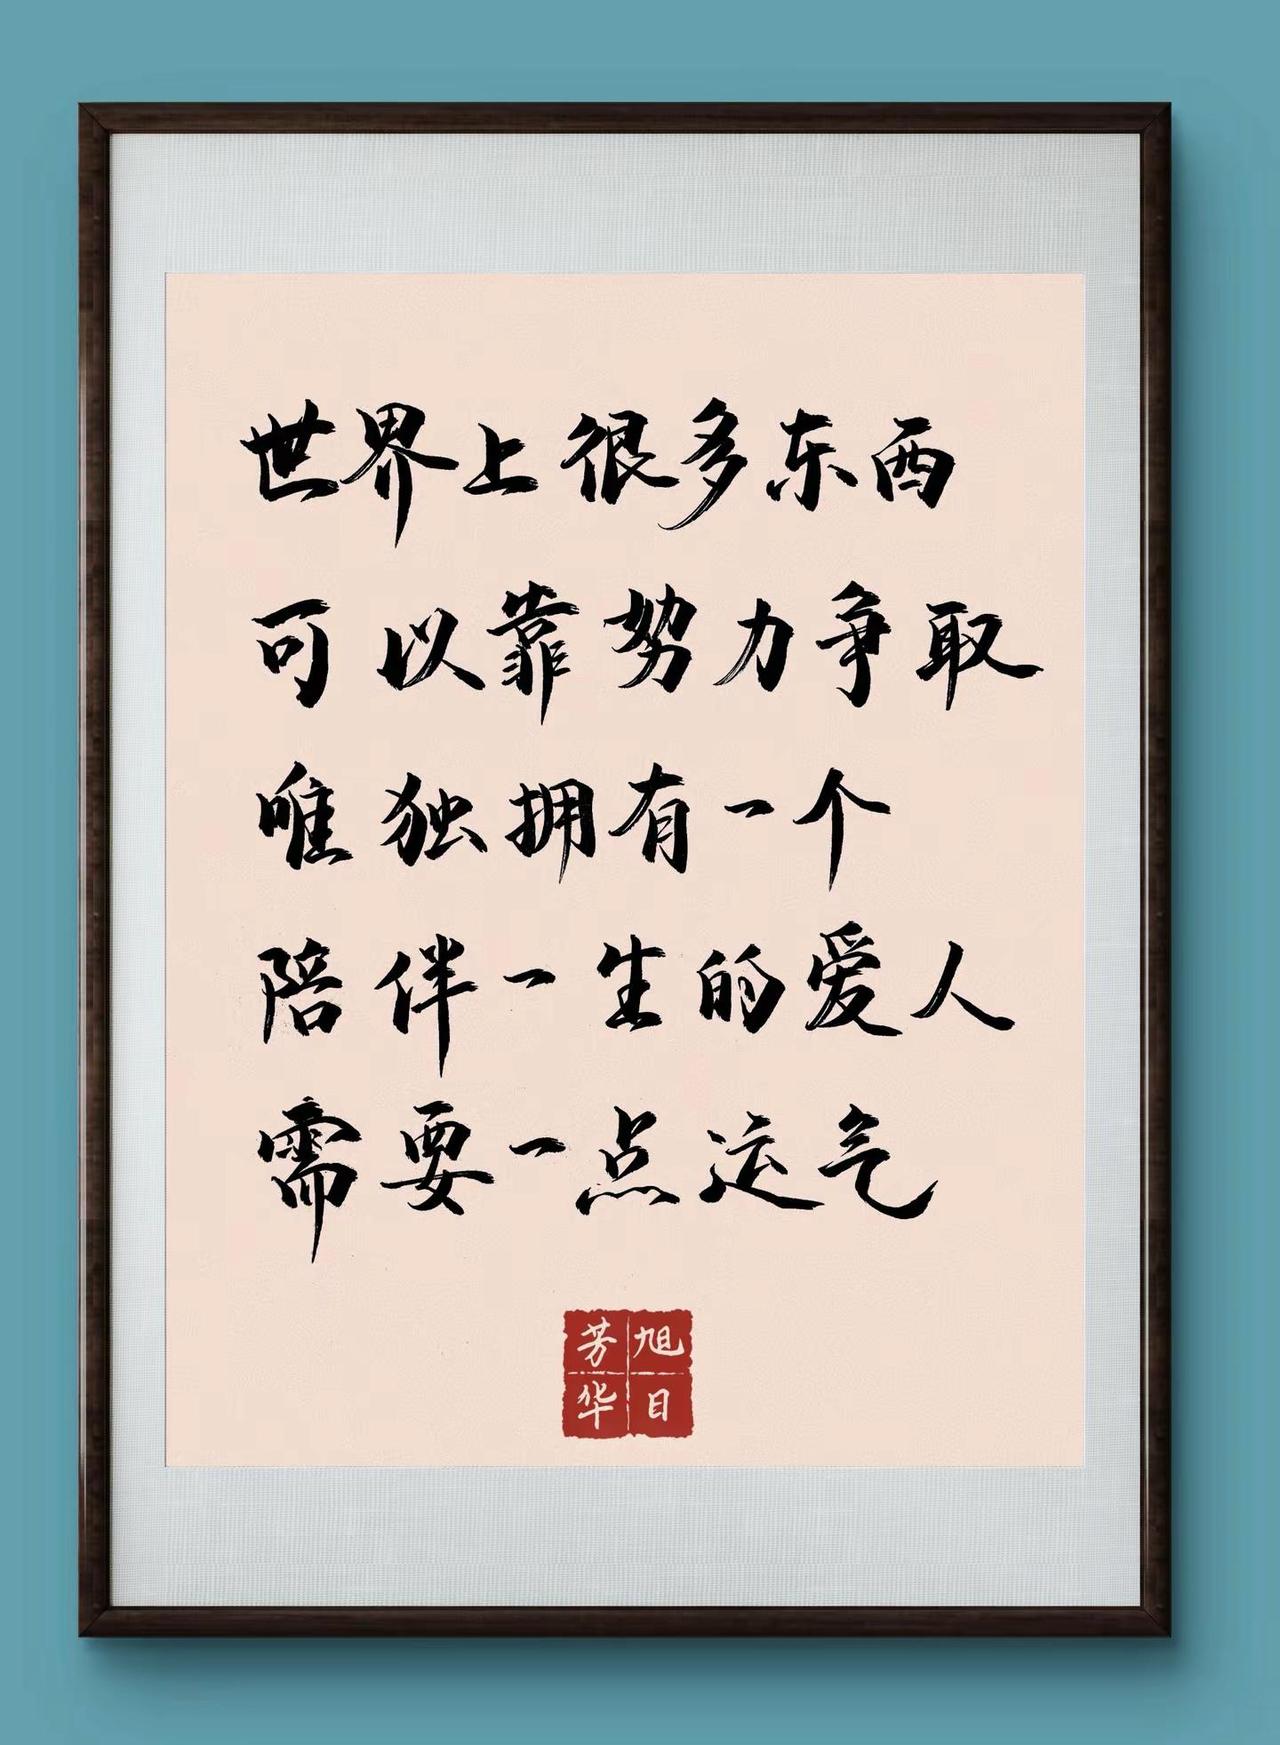 世界上很多东西
可以靠努力争取
唯独拥有一个
陪伴一生的爱人
需要一点运气
旭日
芳华